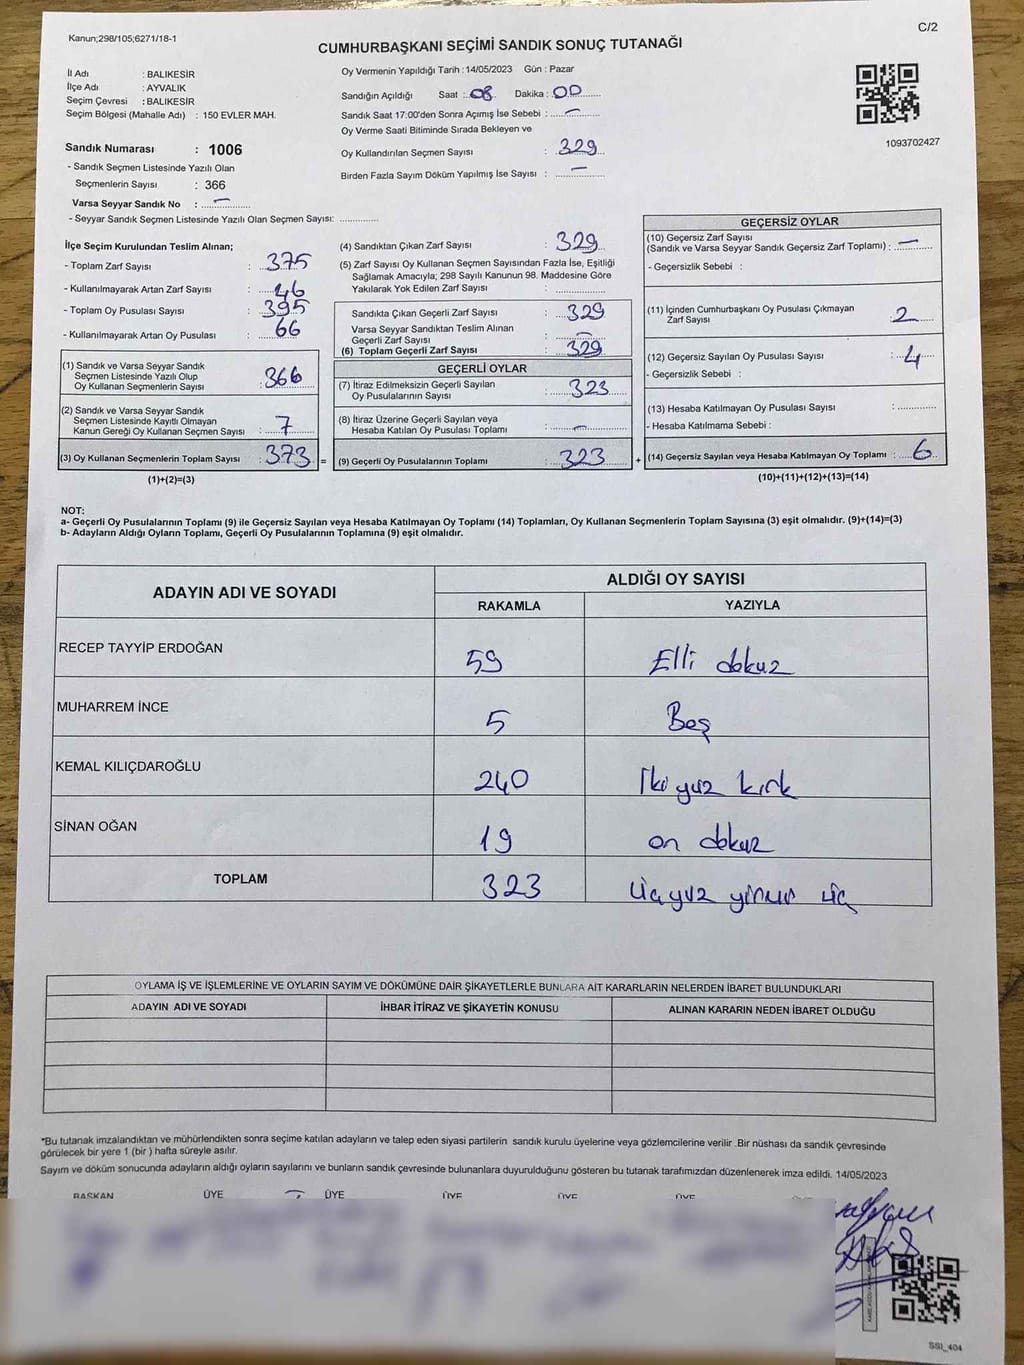 C/2
Kanun;298/105;6271/18-1
CUMHURBAŞKANI SEÇİMİ SANDIK SONUÇ TUTANAĞI
İl Adı : BALIKESİR
İlçe Adı : AYVALIK
Seçim Çevresi : BALIKESİR
Seçim Bölgesi (Mahalle Adı) : 150 EVLER MAH.
Sandık Numarası : 1006
- Sandık Seçmen Listesinde Yazılı Olan
Seçmenlerin Sayısı : 366
Varsa Seyyar Sandık No : —
- Seyyar Sandık Seçmen Listesinde Yazılı Olan Seçmen Sayısı: ..............
Oy Vermenin Yapıldığı Tarih : 14/05/2023 Gün : Pazar
Sandığın Açıldığı Saat : 08 Dakika : 00
Sandık Saat 17:00'den Sonra Açımış İse Sebebi : —
Oy Verme Saati Bitiminde Sırada Bekleyen ve
Oy Kullandırılan Seçmen Sayısı : 329
Birden Fazla Sayım Döküm Yapılmış İse Sayısı : —
1093702427
İlçe Seçim Kurulundan Teslim Alınan;
- Toplam Zarf Sayısı : 375
- Kullanılmayarak Artan Zarf Sayısı : 46
- Toplam Oy Pusulası Sayısı : 395
- Kullanılmayarak Artan Oy Pusulası : 66
(1) Sandık ve Varsa Seyyar Sandık
Seçmen Listesinde Yazılı Olup
Oy Kullanan Seçmenlerin Sayısı : 366
(2) Sandık ve Varsa Seyyar Sandık
Seçmen Listesinde Kayıtlı Olmayan
Kanun Gereği Oy Kullanan Seçmen Sayısı : 7
(3) Oy Kullanan Seçmenlerin Toplam Sayısı : 373 =
(1)+(2)=(3)
(4) Sandıktan Çıkan Zarf Sayısı : 329
(5) Zarf Sayısı Oy Kullanan Seçmen Sayısından Fazla İse, Eşitliği
Sağlamak Amacıyla; 298 Sayılı Kanunun 98. Maddesine Göre
Yakılarak Yok Edilen Zarf Sayısı : ..............
Sandıkta Çıkan Geçerli Zarf Sayısı : 329
Varsa Seyyar Sandıktan Teslim Alınan
Geçerli Zarf Sayısı : —
(6) Toplam Geçerli Zarf Sayısı : 329
GEÇERLİ OYLAR
(7) İtiraz Edilmeksizin Geçerli Sayılan
Oy Pusulalarının Sayısı : 323
(8) İtiraz Üzerine Geçerli Sayılan veya
Hesaba Katılan Oy Pusulası Toplamı : —
(9) Geçerli Oy Pusulalarının Toplamı : 323 +
GEÇERSİZ OYLAR
(10) Geçersiz Zarf Sayısı
(Sandık ve Varsa Seyyar Sandık Geçersiz Zarf Toplamı) : —
- Geçersizlik Sebebi :
(11) İçinden Cumhurbaşkanı Oy Pusulası Çıkmayan
Zarf Sayısı : 2
(12) Geçersiz Sayılan Oy Pusulası Sayısı : 4
- Geçersizlik Sebebi :
(13) Hesaba Katılmayan Oy Pusulası Sayısı : ..............
- Hesaba Katılmama Sebebi :
(14) Geçersiz Sayılan veya Hesaba Katılmayan Oy Toplamı : 6
(10)+(11)+(12)+(13)=(14)
NOT:
a- Geçerli Oy Pusulalarının Toplamı (9) ile Geçersiz Sayılan veya Hesaba Katılmayan Oy Toplamı (14) Toplamları, Oy Kullanan Seçmenlerin Toplam Sayısına (3) eşit olmalıdır. (9)+(14)=(3)
b- Adayların Aldığı Oyların Toplamı, Geçerli Oy Pusulalarının Toplamına (9) eşit olmalıdır.
ADAYIN ADI VE SOYADI ALDIĞI OY SAYISI
RAKAMLA YAZIYLA
RECEP TAYYİP ERDOĞAN 59 Elli dokuz
MUHARREM İNCE 5 Beş
KEMAL KILIÇDAROĞLU 240 İki yuz kırk
SİNAN OĞAN 19 on dokuz
TOPLAM 323 üçyuz yirmi üç
OYLAMA İŞ VE İŞLEMLERİNE VE OYLARIN SAYIM VE DÖKÜMÜNE DAİR ŞİKAYETLERLE BUNLARA AİT KARARLARIN NELERDEN İBARET BULUNDUKLARI
ADAYIN ADI VE SOYADI İHBAR İTİRAZ VE ŞİKAYETİN KONUSU ALINAN KARARIN NEDEN İBARET OLDUĞU
*Bu tutanak imzalandıktan ve mühürlendikten sonra seçime katılan adayların ve talep eden siyasi partilerin sandık kurulu üyelerine veya gözlemcilerine verilir .Bir nüshası da sandık çevresinde
görülecek bir yere 1 (bir ) hafta süreyle asılır.
Sayım ve döküm sonucunda adayların aldığı oyların sayılarını ve bunların sandık çevresinde bulunanlara duyurulduğunu gösteren bu tutanak tarafımızdan düzenlenerek imza edildi. 14/05/2023
BAŞKAN ÜYE ÜYE ÜYE ÜYE ÜYE
SSI_404